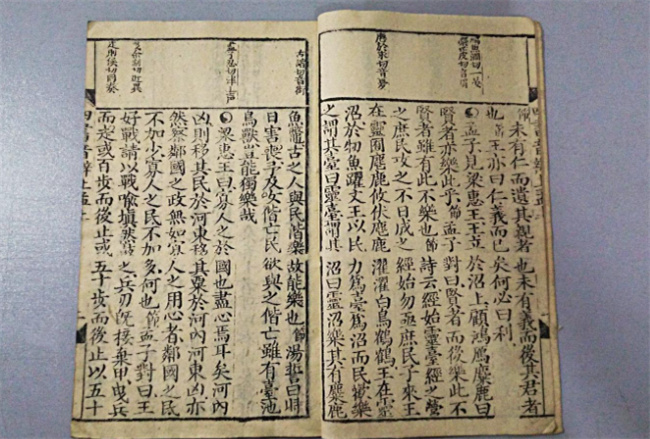 未有仁而遺其親者也未有義而後其君者
也王亦曰仁義而已矣何必曰利
孟子見梁惠王王立於沼上顧鴻鴈麋鹿曰
賢者亦樂此乎節孟子對曰賢者而後樂此不
賢者雖有此不樂也節詩云經始靈臺經之營
之庶民攻之不日成之經始勿亟庶民子來王
在靈囿麀鹿攸伏麀鹿濯濯白鳥鶴鶴王在靈
沼於牣魚躍文王以民力為臺為沼而民歡樂
之謂其臺曰靈臺謂其沼曰靈沼樂其有麋鹿
魚鼈古之人與民偕樂故能樂也節湯誓曰時
日害喪予及女偕亡民欲與之偕亡雖有臺池
鳥獸豈能獨樂哉
梁惠王曰寡人之於國也盡心焉耳矣河內
凶則移其民於河東移其粟於河內河東凶亦
然察鄰國之政無如寡人之用心者鄰國之民
不加少寡人之民不加多何也節孟子對曰王
好戰請以戰喻填然鼓之兵刃既接棄甲曳兵
而走或百步而後止或五十步而後止以五十